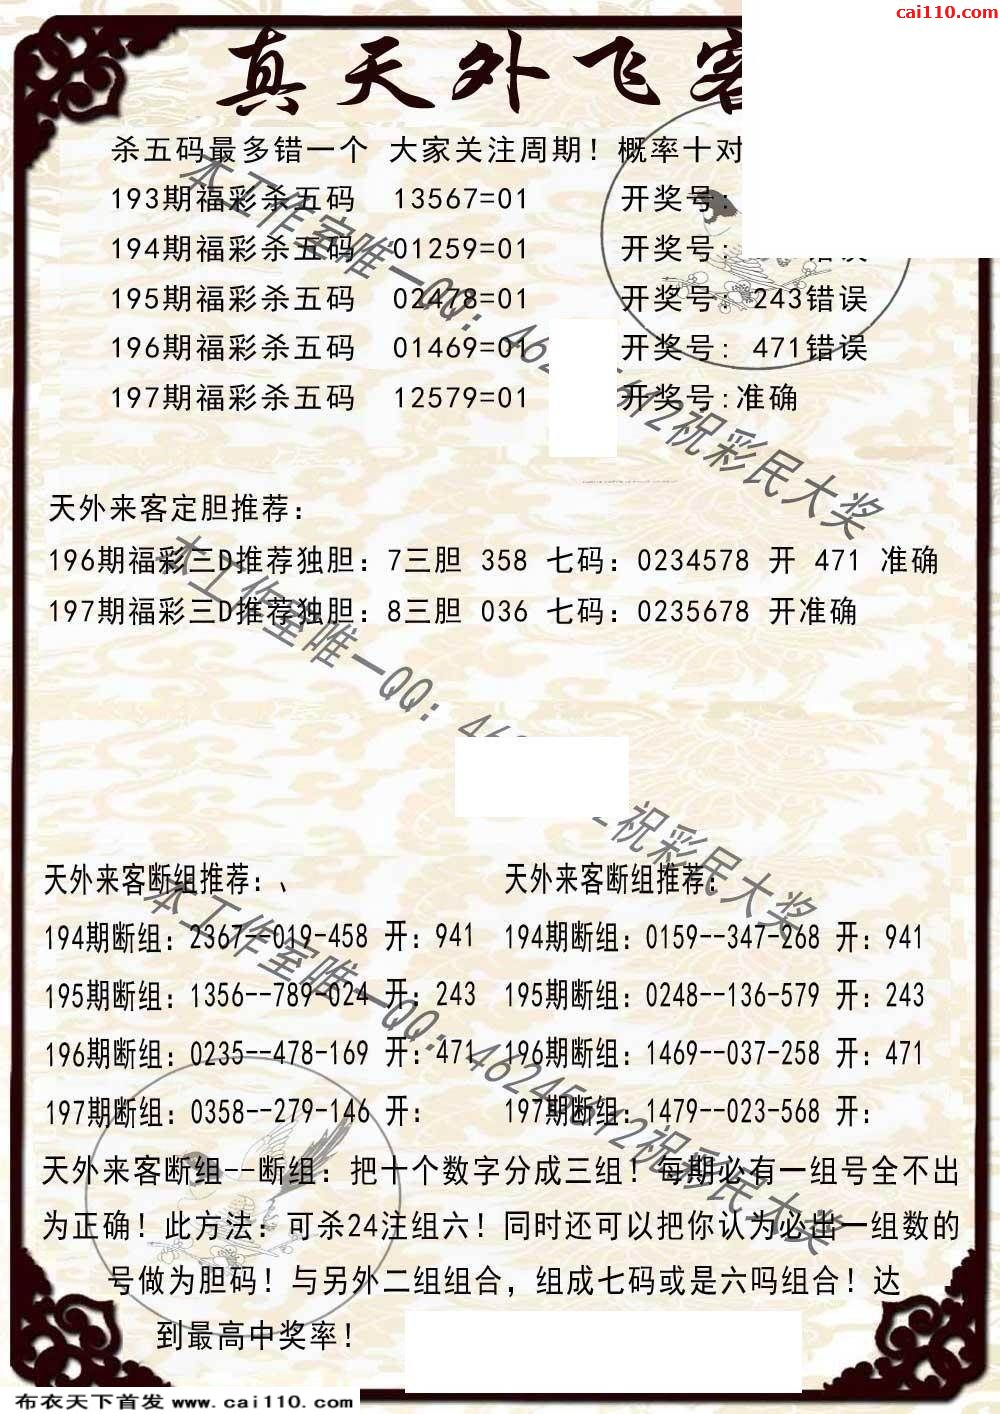 cai110.com
真天外飞客
杀五码最多错一个 大家关注周期！概率十对
193期福彩杀五码 13567=01 开奖号:
194期福彩杀五码 01259=01 开奖号: 错误
195期福彩杀五码 02478=01 开奖号: 243错误
196期福彩杀五码 01469=01 开奖号: 471错误
197期福彩杀五码 12579=01 开奖号:准确
本工作室唯一QQ: 462 5612祝彩民大奖
天外来客定胆推荐：
196期福彩三D推荐独胆：7三胆 358 七码：0234578 开 471 准确
197期福彩三D推荐独胆：8三胆 036 七码：0235678 开准确
本工作室唯一QQ: 46 2祝彩民大奖
天外来客断组推荐：、 天外来客断组推荐：
194期断组：2367--019-458 开：941 194期断组：0159--347-268 开：941
195期断组：1356--789-024 开：243 195期断组：0248--136-579 开：243
196期断组：0235--478-169 开：471 196期断组：1469--037-258 开：471
197期断组：0358--279-146 开： 197期断组：1479--023-568 开：
本工作室唯一QQ: 46245612祝彩民大奖
天外来客断组--断组：把十个数字分成三组！每期必有一组号全不出
为正确！此方法：可杀24注组六！同时还可以把你认为必出一组数的
号做为胆码！与另外二组组合，组成七码或是六吗组合！达
到最高中奖率！
布衣天下首发 www.cai110.com